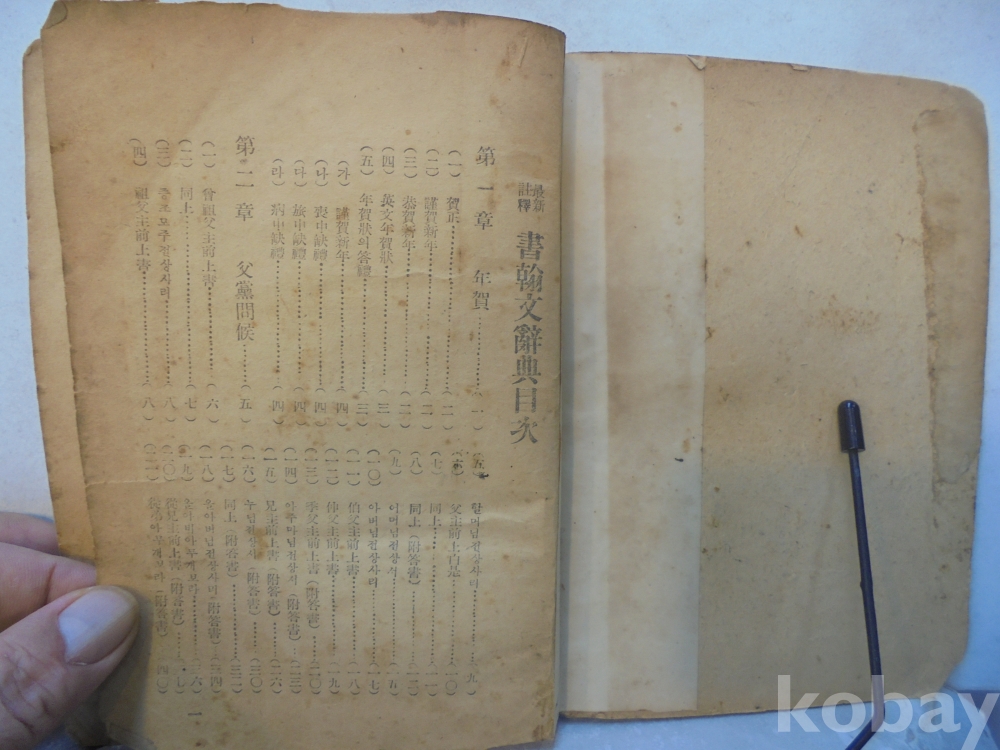 最新
註釋
書翰文辭典目次
第一章 年賀………(一)
(一) 賀正………(二)
(二) 謹賀新年………(二)
(三) 恭賀新年………(二)
(四) 英文年賀狀………(三)
(五) 年賀狀의答禮………(三)
(가) 謹賀新年………(四)
(나) 喪中缺禮………(四)
(다) 旅中缺禮………(四)
(라) 病中缺禮………(四)
第二章 父黨問候………(五)
(一) 曾祖父主前上書………(六)
(二) 同上………(七)
(三) 증조모주전상사리………(八)
(四) 祖父主前上書………(八)
(五) 할머님전상사리………(九)
(六) 父主前上白是………(一〇)
(七) 同上………(一一)
(八) 同上(附答書)………(一三)
(九) 어머님전상서………(一五)
(一〇) 아버님전상사리………(一七)
(一一) 伯父主前上書………(一八)
(一二) 仲父主前上書………(一九)
(一三) 季父主前上書(附答書)………(二〇)
(一四) 아주머님전상서(附答書)………(二三)
(一五) 兄主前上書(附答書)………(二六)
(一六) 누님전상서(附答書)………(三〇)
(一七) 同上(附答書)………(三二)
(一八) (附答書)………(三四)
(一九)
(二〇) 從兄主前上書(附答書)
(二一) (附答書)………(四〇)
一
kobay